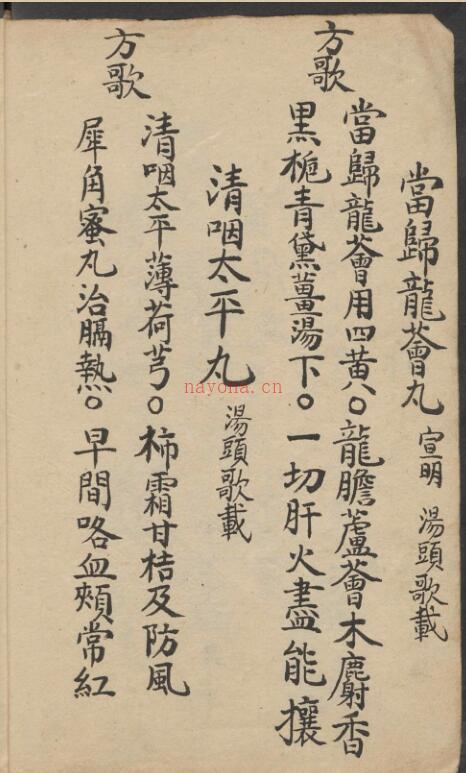 當歸龍薈丸 宣明 湯頭歌載
方歌
當歸龍薈用四黃。龍膽蘆薈木麝香
黑梔青黛薑湯下。一切肝火盡能攘
清咽太平丸 湯頭歌載
方歌
清咽太平薄荷芎。柿霜甘桔及防風
犀角蜜丸治膈熱。早間咯血頰常紅
nayona.cn